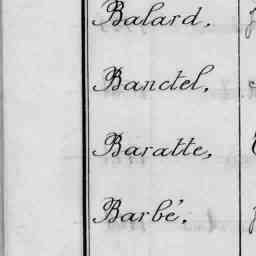 Balard.
Banctel.
Baratte,
Barbé.